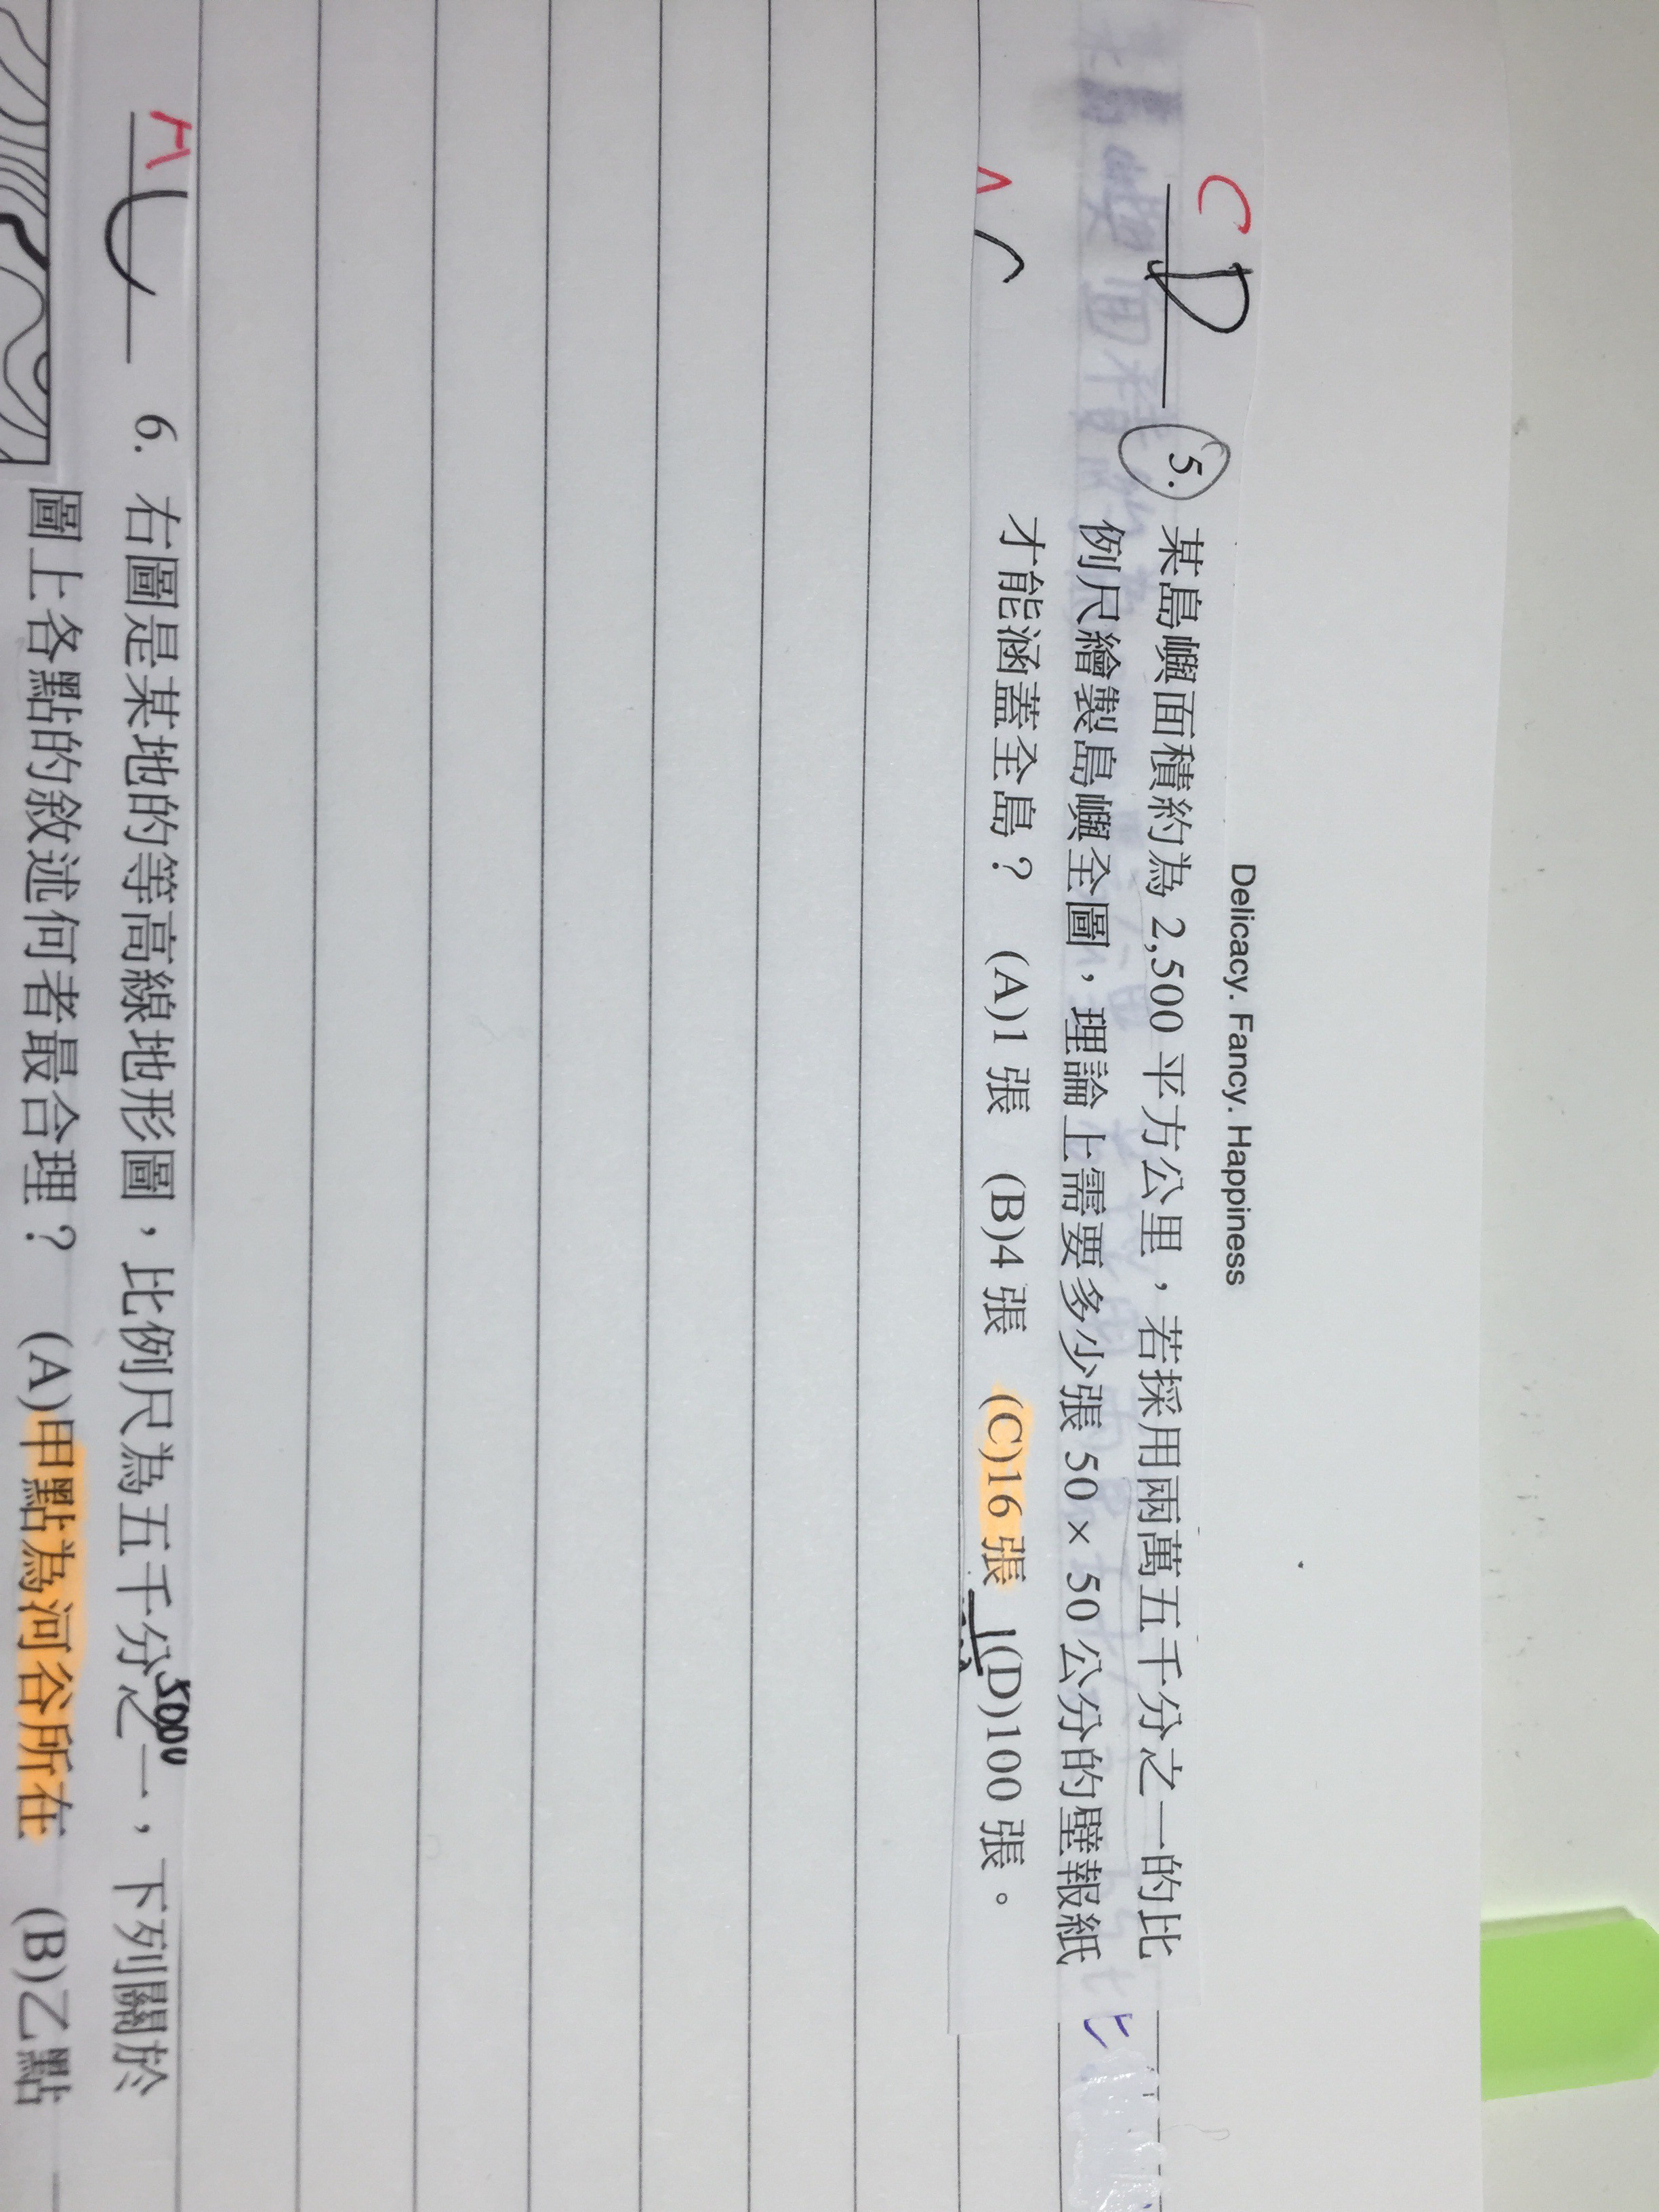 Delicacy. Fancy. Happiness
C D 5. 某島嶼面積約為 2,500 平方公里，若採用兩萬五千分之一的比
例尺繪製島嶼全圖，理論上需要多少張 50 × 50 公分的壁報紙
才能涵蓋全島？ (A)1 張 (B)4 張 (C)16 張 (D)100 張。
A 6. 右圖是某地的等高線地形圖，比例尺為五千分之一，下列關於
5000
圖上各點的敘述何者最合理？ (A)甲點為河谷所在 (B)乙點